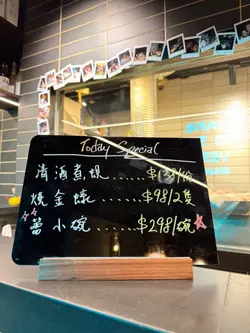 Today Special
清酒煮蜆......$138/份
燒金蠔......$98/2隻
小碗......$298/碗